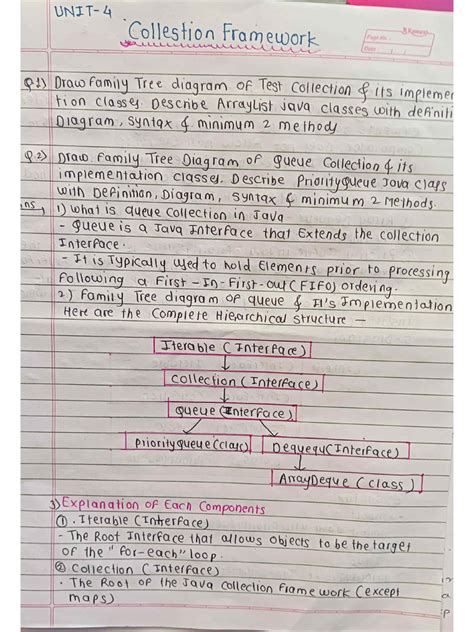 UNIT-4
Collestion Framework
Page No.
Date
Q1) Draw Family Tree diagram of Test Collection & its implemen
tion classes. Describe Arraylist Java classes with definiti
Diagram, Syntax & minimum 2 methods
Q2) Draw Family Tree Diagram of Queue Collection & its
implementation classes. Describe PriorityQueue Java class
With Definition, Diagram, Syntax & minimum 2 Methods.
ns, 1) What is Queue Collection in Java
- Queue is a Java Interface that Extends the collection
Interface.
- It is Typically used to hold Elements prior to processing
Following a First-In-First-out (FIFO) ordering.
2) Family Tree diagram of queue & It's Implementation
Here are the Complete Hierarchical Structure -
Iterable (Interface)
Collection (Interface)
Queue (Interface)
PriorityQueue (class)
Dequequ (Interface)
ArrayDeque (class)
3) Explanation of Each Components
① . Iterable (Interface)
- The Root Interface that allows objects to be the target
of the "for-each" loop.
② Collection (Interface)
. The Root of the Java Collection Frame work (except
maps)